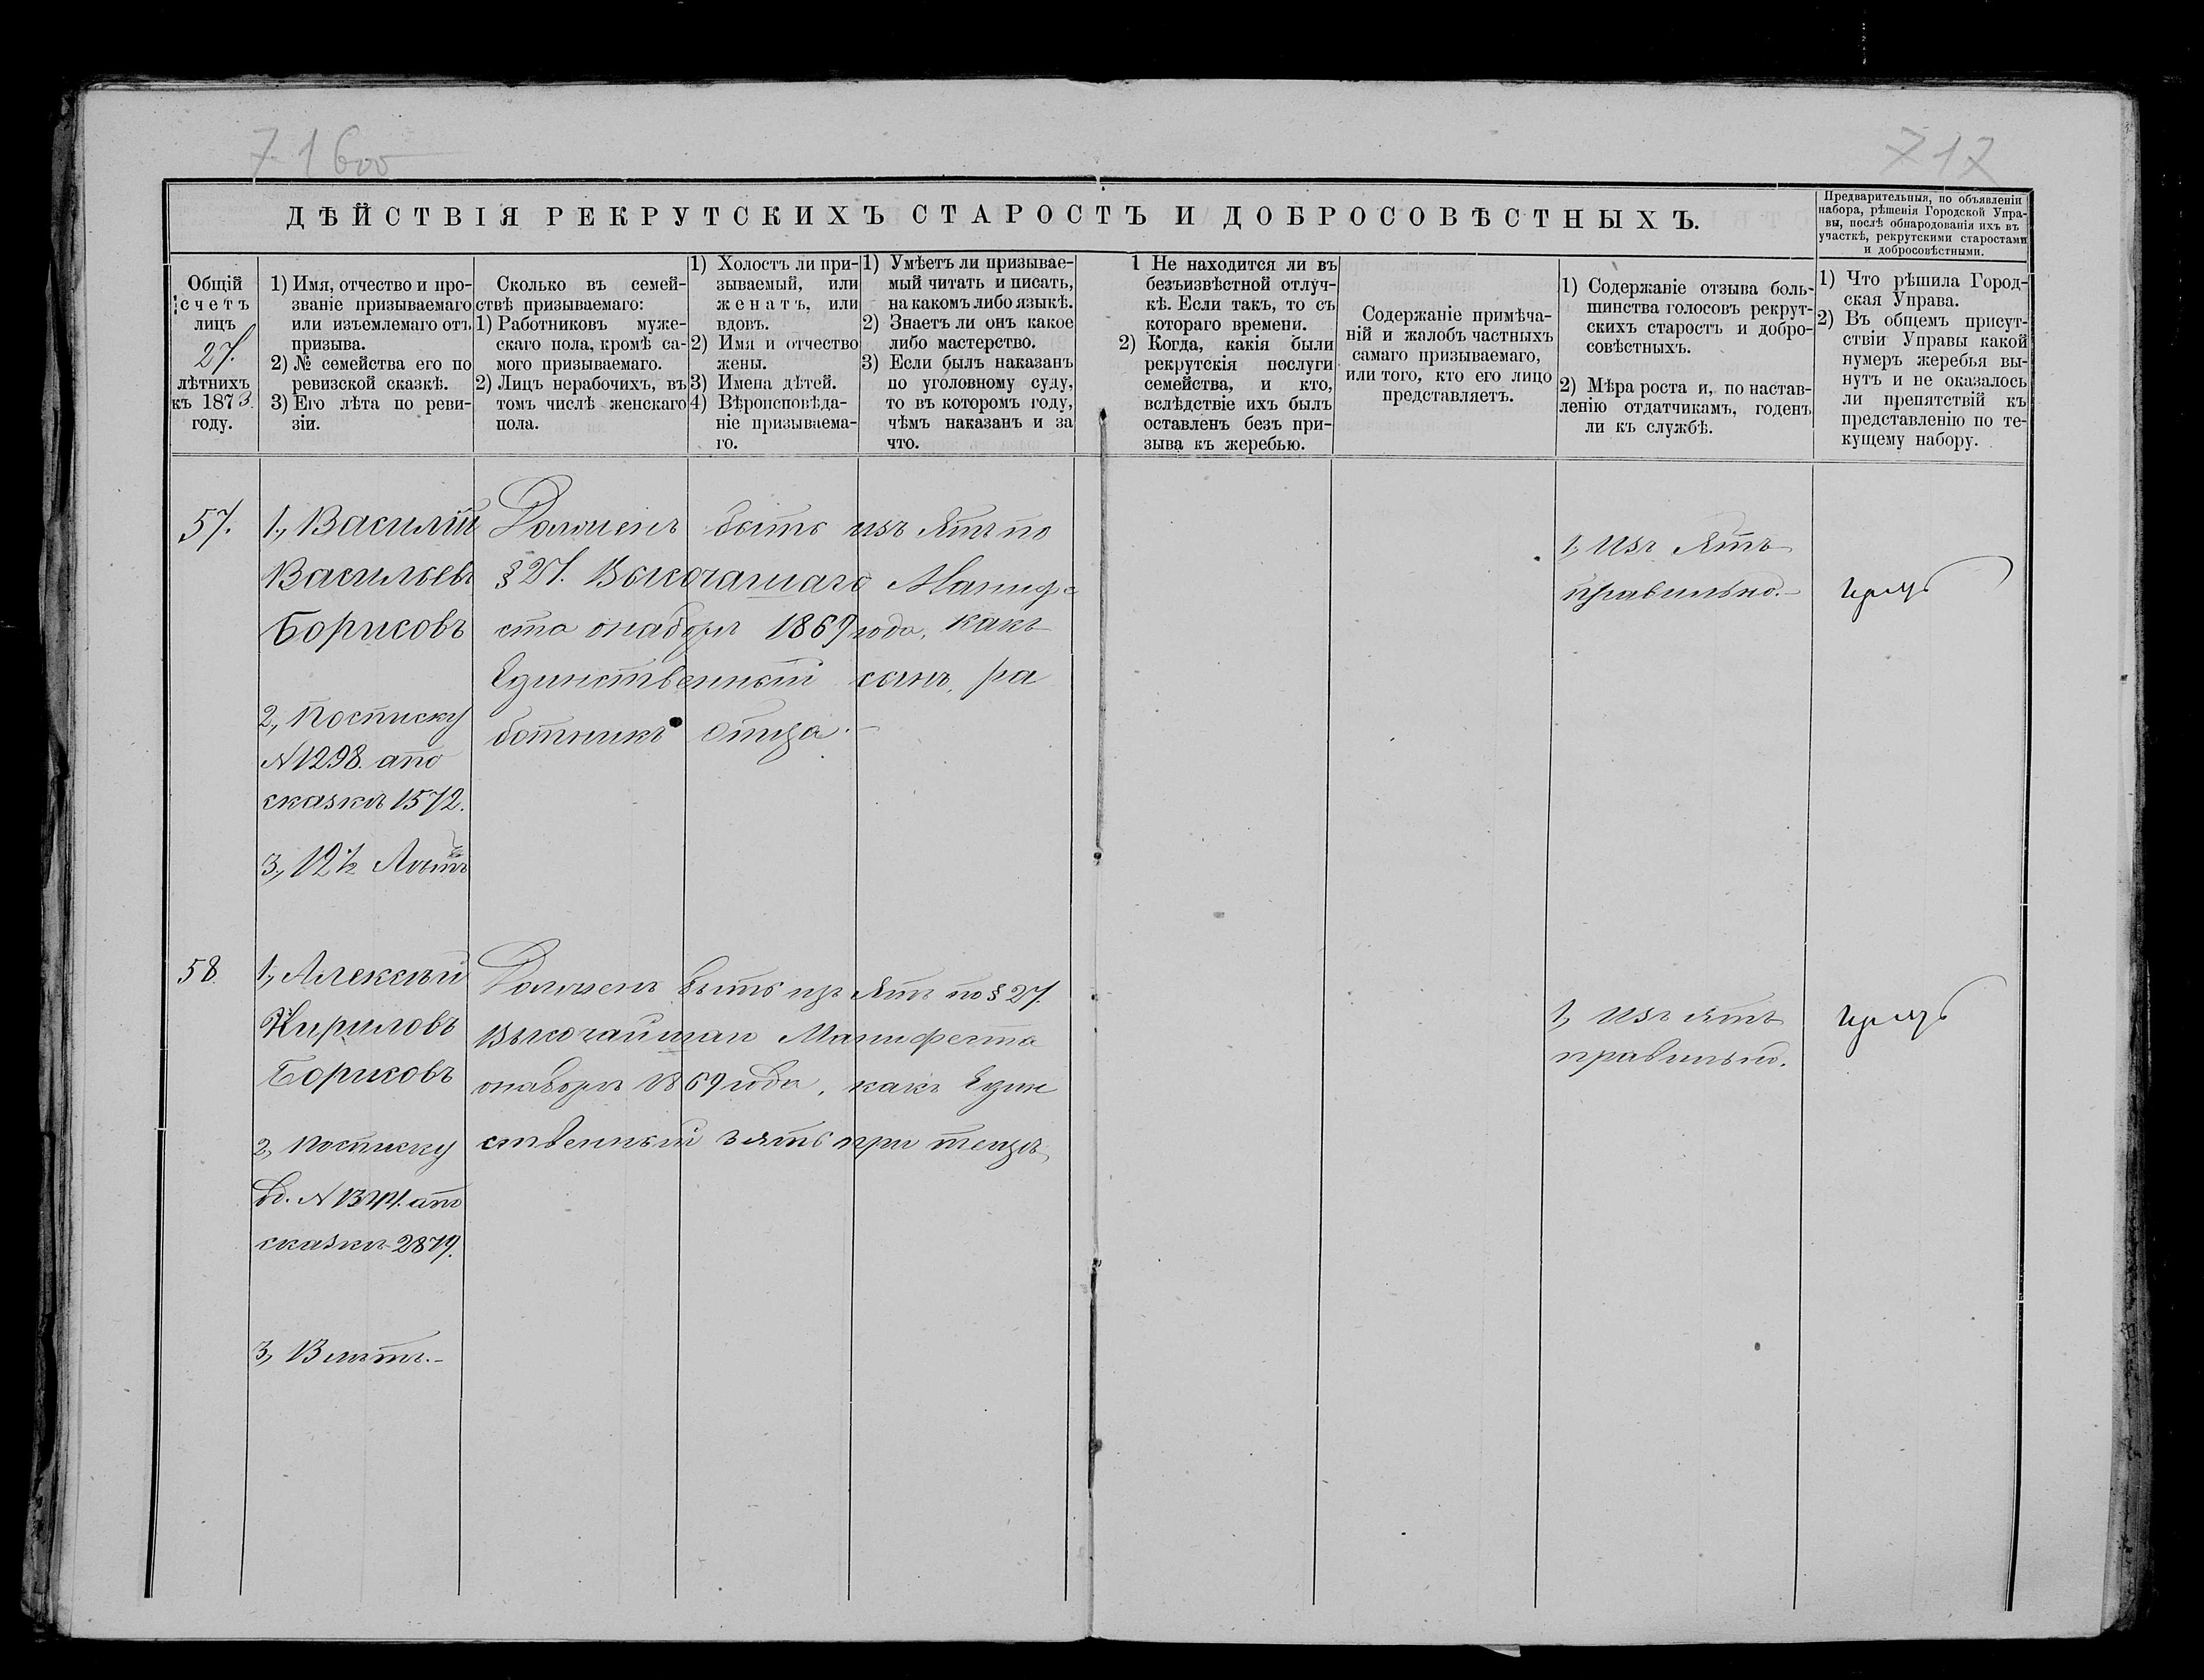 716об
717
ДѢЙСТВІЯ РЕКРУТСКИХЪ СТАРОСТЪ И ДОБРОСОВѢСТНЫХЪ.
Предварительныя, по объявленіи
набора, рѣшенія Городской Упра-
вы, послѣ обнародованія ихъ въ
участкѣ, рекрутскими старостами
и добросовѣстными.
Общій
счетъ
лицъ
27.
лѣтнихъ
къ 1873.
году.
1) Имя, отчество и про-
званіе призываемаго
или изъемлемаго отъ
призыва.
2) № семейства его по
ревизской сказкѣ.
3) Его лѣта по реви-
зіи.
Сколько въ семей-
ствѣ призываемаго:
1) Работниковъ муже-
скаго пола, кромѣ са-
мого призываемаго.
2) Лицъ нерабочихъ, въ
томъ числѣ женскаго
пола.
1) Холостъ ли при-
зываемый, или
женатъ, или
вдовъ.
2) Имя и отчество
жены.
3) Имена дѣтей.
4) Вѣроисповѣда-
ніе призываема-
го.
1) Умѣетъ ли призывае-
мый читать и писать,
на какомъ либо языкѣ.
2) Знаетъ ли онъ какое
либо мастерство.
3) Если былъ наказанъ
по уголовному суду,
то въ которомъ году,
чѣмъ наказанъ и за
что.
1 Не находится ли въ
безъизвѣстной отлуч-
кѣ. Если такъ, то съ
котораго времени.
2) Когда, какія были
рекрутскія послуги
семейства, и кто,
вслѣдствіе ихъ былъ
оставленъ безъ при-
зыва къ жеребью.
Содержаніе примѣча-
ній и жалобъ частныхъ
самаго призываемаго,
или того, кто его лицо
представляетъ.
1) Содержаніе отзыва боль-
шинства голосовъ рекрут-
скихъ старостъ и добро-
совѣстныхъ.
2) Мѣра роста и, по настав-
ленію отдатчикамъ, годенъ
ли къ службѣ.
1) Что рѣшила Город-
ская Управа.
2) Въ общемъ присут-
ствіи Управы какой
нумеръ жеребья вы-
нутъ и не оказалось
ли препятствій къ
представленію по те-
кущему набору.
57.
1., Василій
Васильевъ
Борисовъ
2., По списку
№ 1298. а по
сказкѣ 1572.
3., 12½ Лѣтъ
Долженъ быть изъятъ по
§ 27. Высочашаго Манифе
ста о наборѣ 1869 года, какъ
Единственный сынъ, ра
ботникъ отца.—
1., Изъятъ
правильно.—
58.
1., Алексѣй
Кириловъ
Борисовъ
2., По списку
№ 1344. а по
сказкѣ 2879.
3., 13 лѣтъ.—
Долженъ быть изъятъ по § 27.
Высочайшаго Манифеста
о наборѣ 1869 года, какъ Един
ственный зять при тещѣ,
1., Изъятъ
правильно.